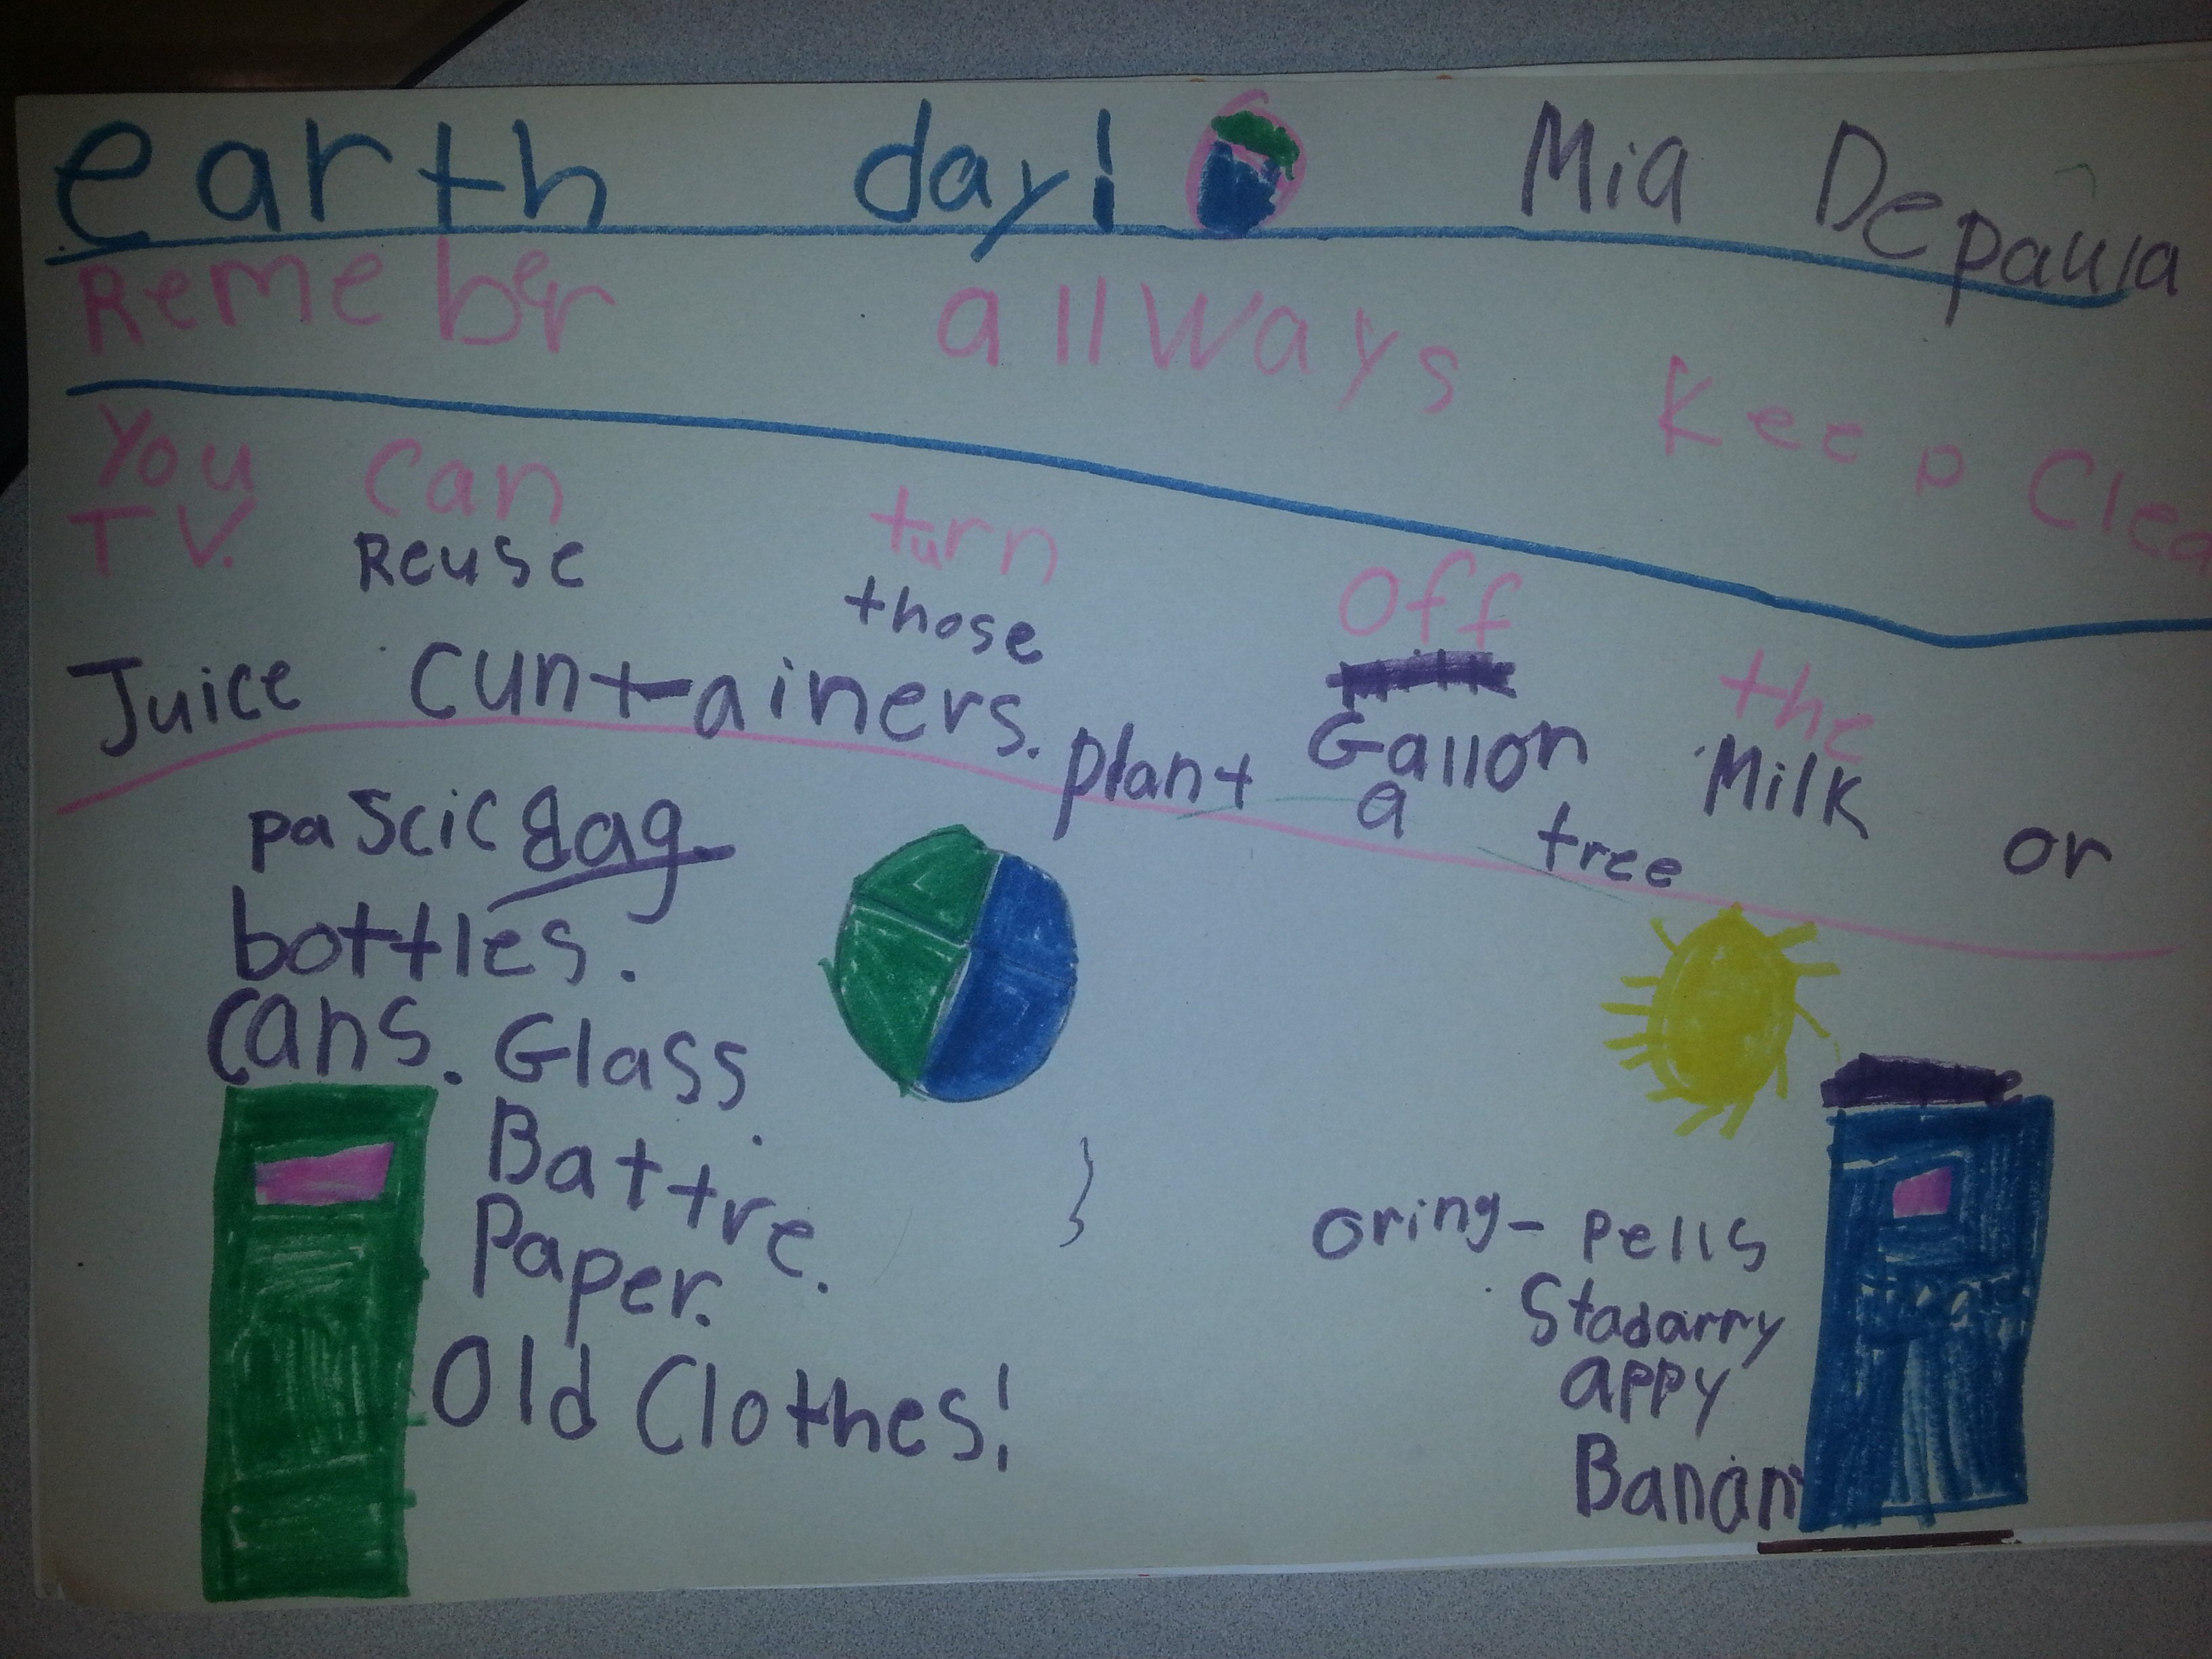 earth day! Mia Depaula
Remeber allways Keep Clea
You can turn off the
T.V. Reuse those Gallon Milk or
Juice cuntainers. plant a tree
pascic Bag
bottles.
cans. Glass.
Battre.
Paper.
Old Clothes!
oring- pells
Stadarry
appy
Banan